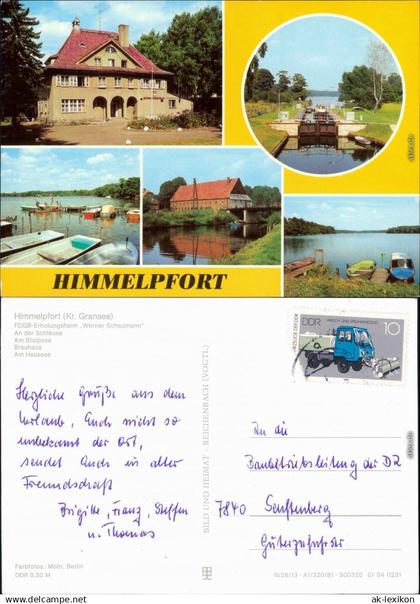 HIMMELPFORT
Himmelpfort (Kr. Gransee)
FDGB-Erholungsheim „Werner Schaumann"
An der Schleuse
Am Stolpsee
Brauhaus
Am Haussee
Herzliche Grüße aus dem
Urlaub, Euch nicht so
unbekannt der Ort,
sendet Euch in alter
Freundschaft
Brigitte, Franz, Steffen
u. Thomas
BILD UND HEIMAT REICHENBACH (VOGTL)
DDR
10
An die
Baubetriebsleitung der DR
7840 Senftenberg
Güterbahnhof
Farbfotos: Mohr, Berlin
DDR 0,20 M
III/26/13 · A1/320/81 · 300320 01 04 0231
© www.ak-lexikon.de/records.htm
ak-lexikon.com